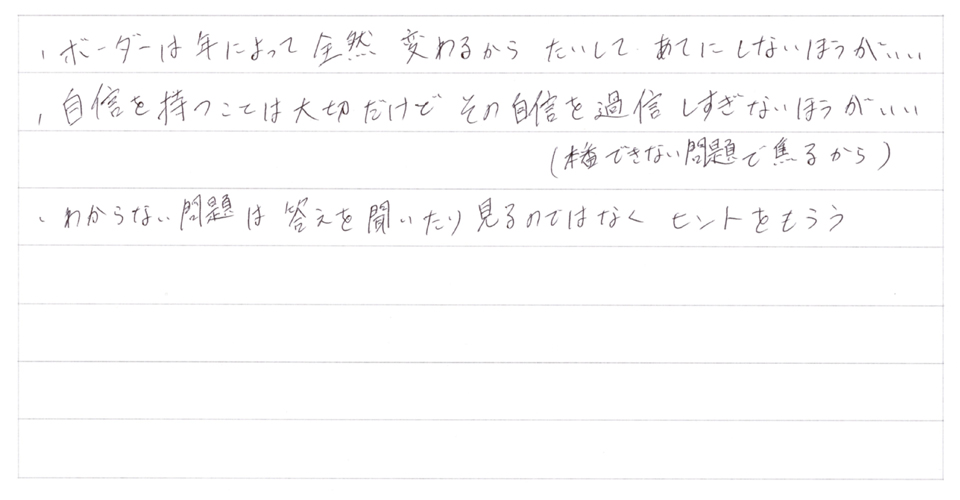 ・ボーダーは年によって全然 変わるから たいして あてにしないほうがいい
・自信を持つことは大切だけど その自信を過信しすぎないほうがいい
(本番できない問題で焦るから)
・わからない問題は答えを聞いたり見るのではなく ヒントをもらう